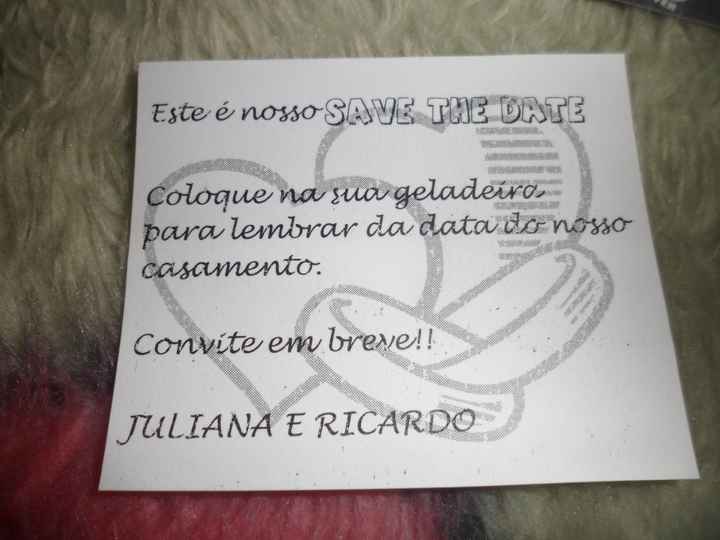 Este é nosso SAVE THE DATE
Coloque na sua geladeira
para lembrar da data do nosso
casamento.
Convite em breve!!
JULIANA E RICARDO